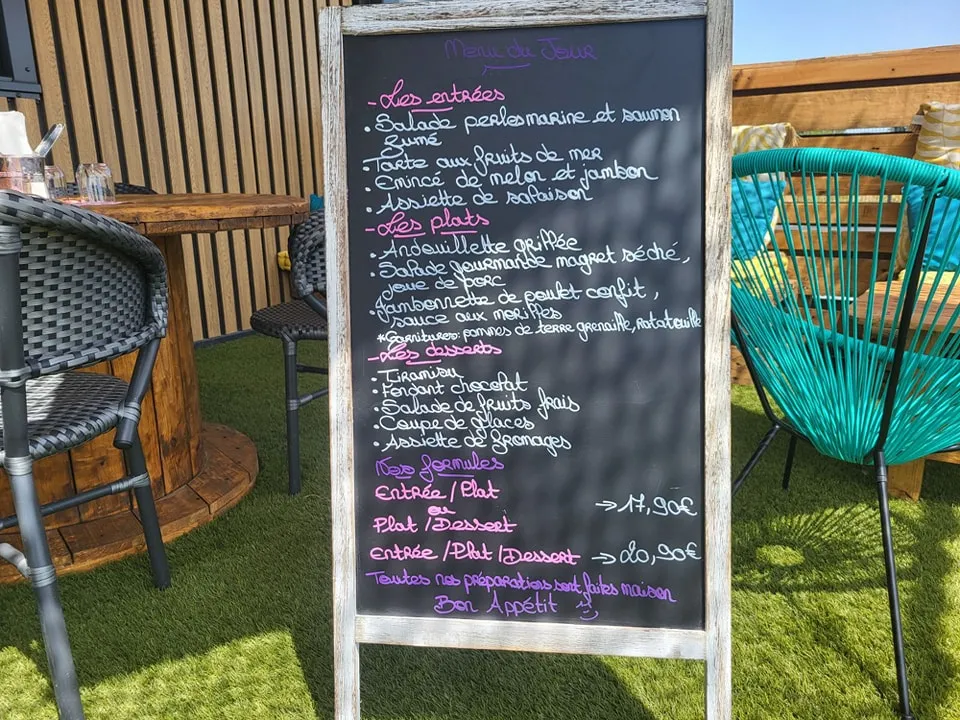 Menu du Jour
- Les entrées
• Salade perles marine et saumon
fumé
• Tarte aux fruits de mer
• Emincé de melon et jambon
• Assiette de salaison
- Les plats
• Andouillette grillée
• Salade gourmande magret séché,
joue de porc
• Jambonnette de poulet confit,
sauce aux morilles
*Garnitures: pommes de terre grenaille, Ratatouille
- Les desserts
• Tiramisu
• Fondant chocolat
• Salade de fruits frais
• Coupe de glaces
• Assiette de fromages
Nos formules
Entrée / Plat
ou → 17,90€
Plat / Dessert
Entrée / Plat / Dessert → 20,90€
Toutes nos préparations sont faites maison
Bon Appétit